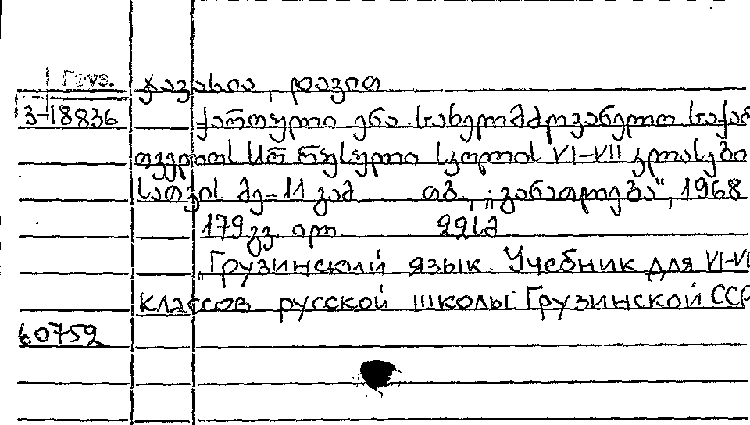 Груз.
ჯავახია, დავით
3-18836 ქართული ენა სახელმძღვანელო საქარ
თველოს სსრ რუსული სკოლის VI-VII კლასები
სათვის მე-11 გამ თბ., „განათლება“, 1968
179 გვ. ილ. 22სმ
„Грузинский язык. Учебник для VI-VI
классов русской школы Грузинской ССР
60752